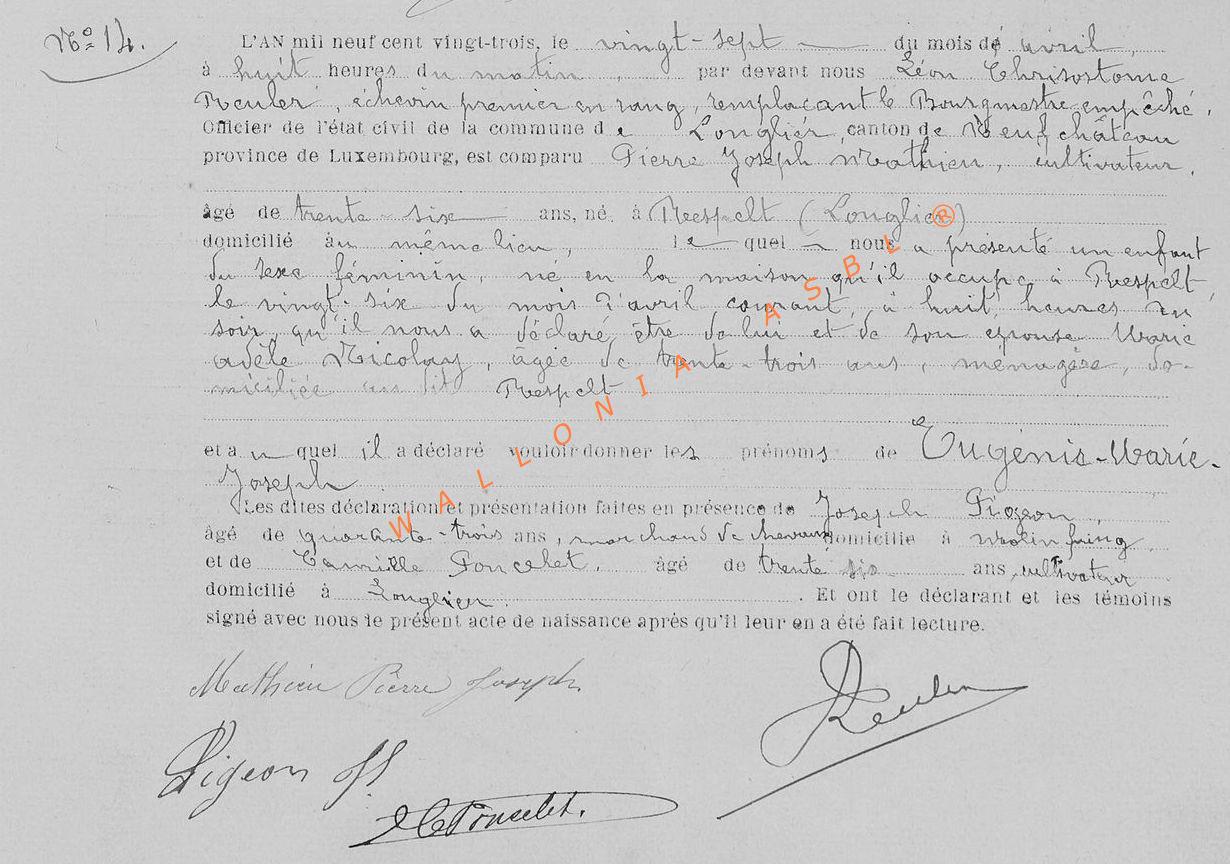 No 14.
L'AN mil neuf cent vingt-trois, le vingt-sept du mois de avril,
à huit heures du matin, par devant nous Léon Chrisostome
Reuler, échevin premier en rang, remplaçant le Bourgmestre empêché,
Officier de l'état civil de la commune de Longlier, canton de Neufchâteau
province de Luxembourg, est comparu Pierre Joseph Mathieu, cultivateur,
âgé de trente-six ans, né à Respelt (Longlier)
domicilié au même lieu, lequel nous a présenté un enfant
du sexe féminin, né en la maison qu'il occupe à Respelt,
le vingt-six du mois d'avril courant, à huit heures du
soir, qu'il nous a déclaré être de lui et de son épouse Marie
Adèle Nicolay, âgée de trente-trois ans, ménagère, do-
miciliée au dit Respelt
et au quel il a déclaré vouloir donner les prénoms de Eugénie-Marie-
Joseph.
Les dites déclaration et présentation faites en présence de Joseph Pigeon,
âgé de quarante-trois ans, marchand de chevaux domicilié à Molinfaing,
et de Camille Poncelet, âgé de trente six ans, cultivateur
domicilié à Longlier. Et ont le déclarant et les témoins
signé avec nous le présent acte de naissance après qu'il leur en a été fait lecture.
Mathieu Pierre Joseph.
Reuler
Pigeon
Poncelet.
WALLONIA ASBL ®